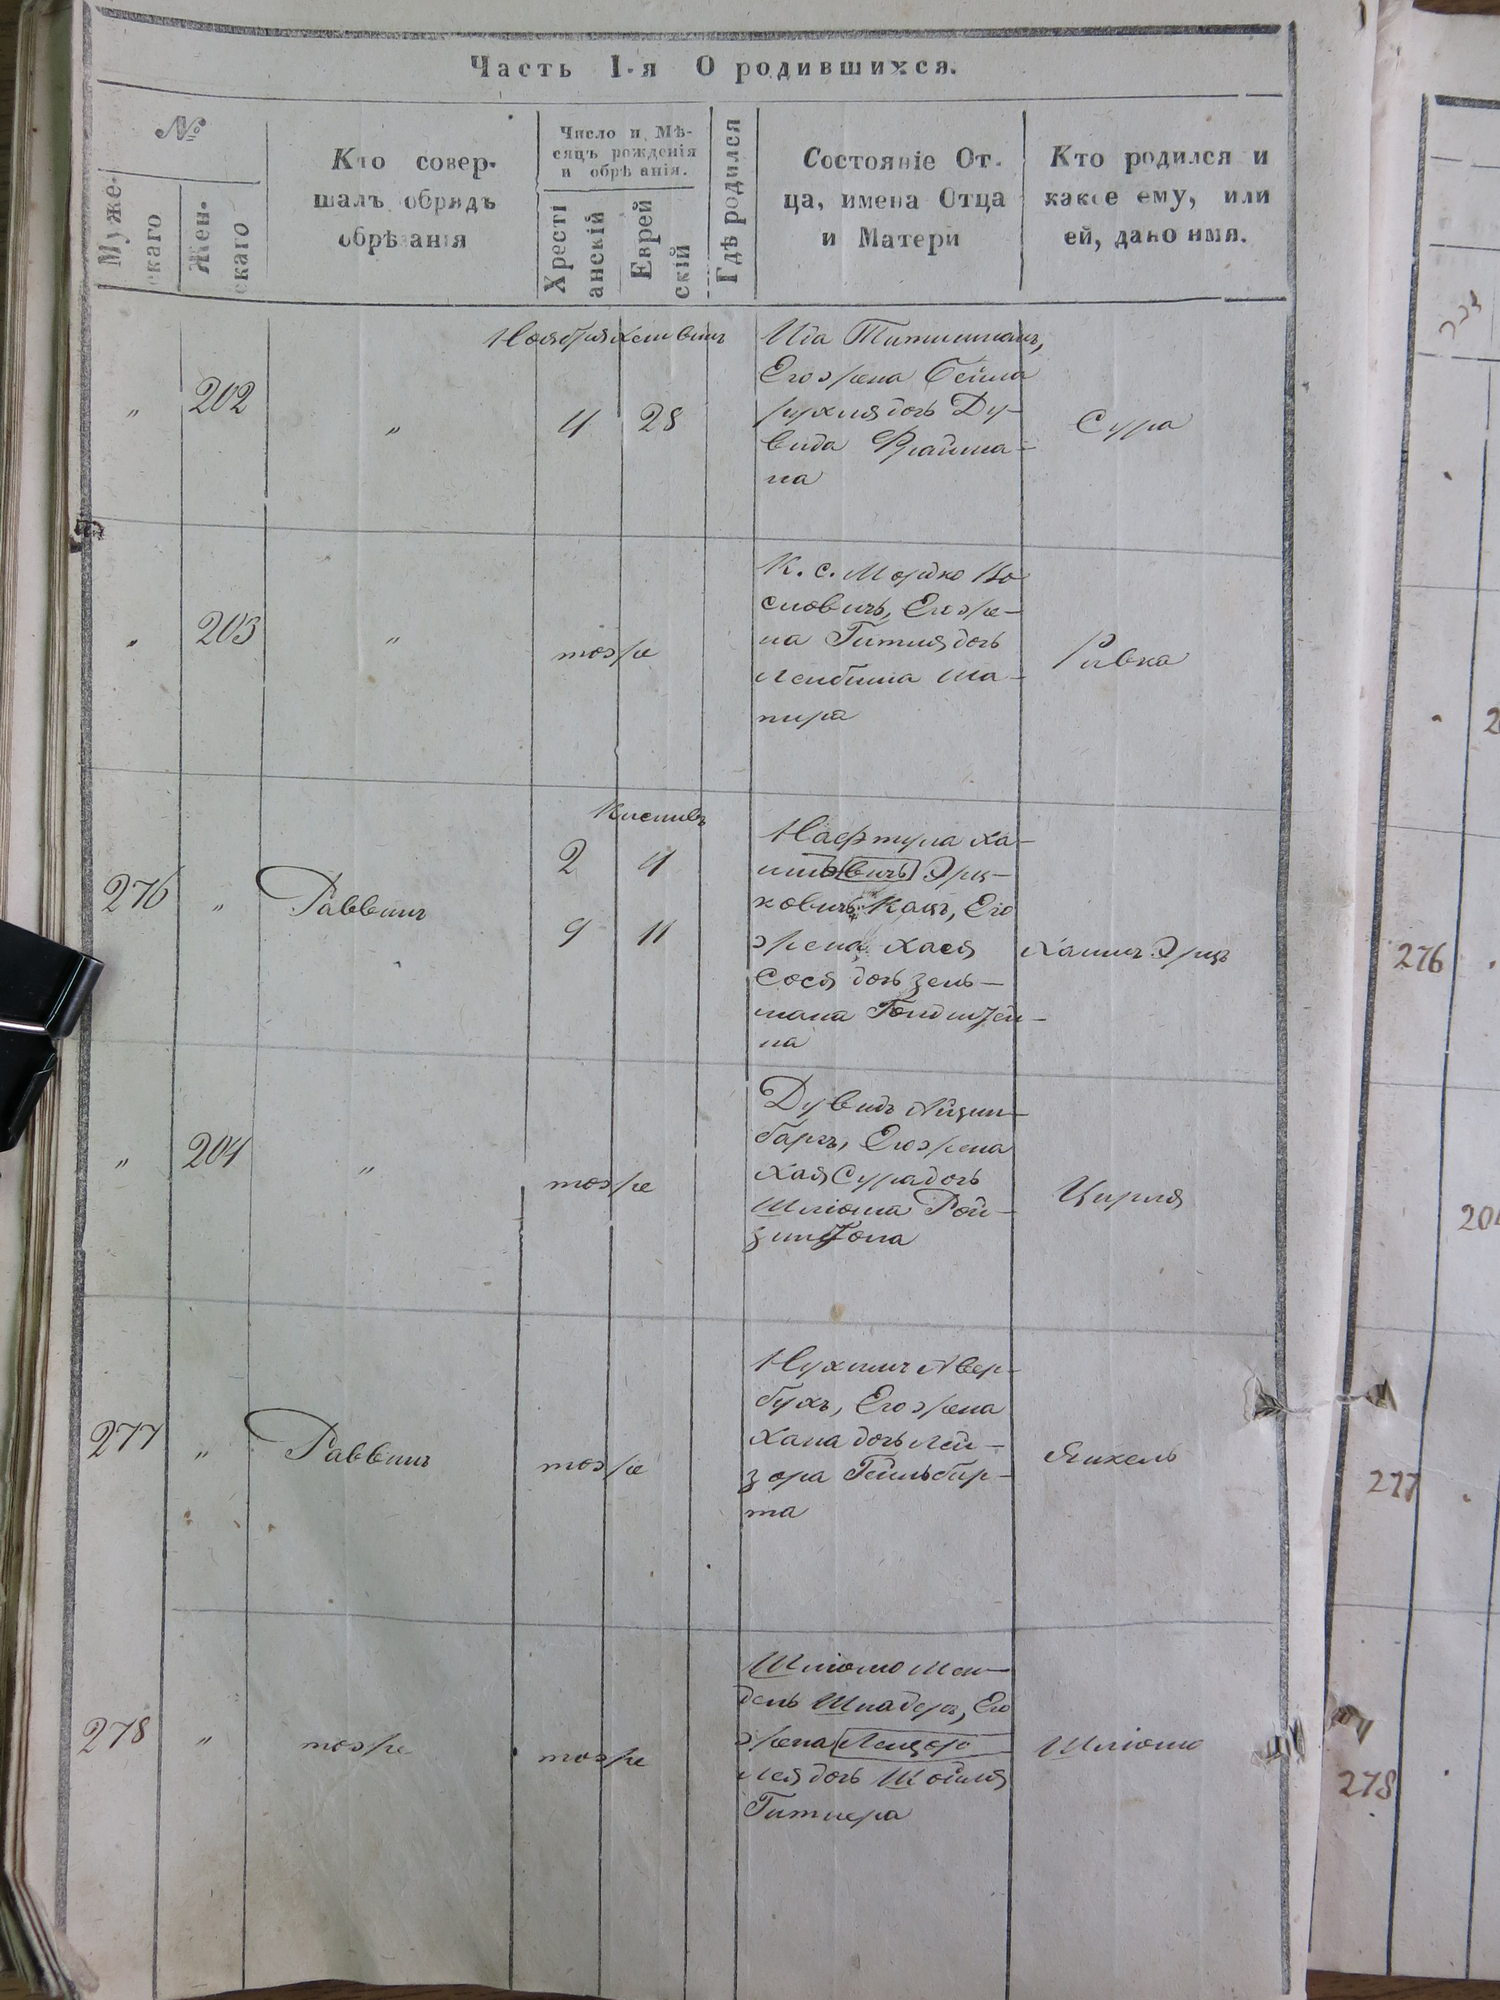 Часть I-я О родившихся.
№
Мужескаго
Женскаго
Кто совершалъ обрядъ обрѣзанія
Число и Мѣсяцъ рожденія и обрѣзанія.
Хрестіанскій
Еврейскій
Гдѣ родился
Состояніе Отца, имена Отца и Матери
Кто родился и какое ему, или ей, дано имя.
Ноября Хешвинъ
„ 202 „ 4 28
Его жена Бейла
Рухля дочь Ду-
вида Фрайма-
на
Сура
„ 203 „ тоже
К. с. Мордко Ио-
сіовичъ, Его же-
на Гитля дочь
Лейбиша Ша-
пира
Ривка
Кисливъ
276 „ Раввинъ
2 4
9 11
Нафтула Ха-
имъ
вичъ Эрш-
ковичъ Кацъ, Его
жена Хася
Сося дочь Зель-
мана Гольдштей-
на
Хаимъ Эршъ
„ 204 „ тоже
Дувидъ Айзин-
баргъ, Его жена
Хая Сура дочь
Шліома Рой-
зинзона
Цирля
277 „ Раввинъ тоже
Нухимъ Авер-
бухъ, Его жена
Хана дочь Лей-
зора Гейльбир-
та
Янкель
278 „ тоже тоже
Шліомо Мен-
дель Шнадеръ, Его
жена
Лея дочь Шойля
Гитнера
Шліомо
276
204
277
278